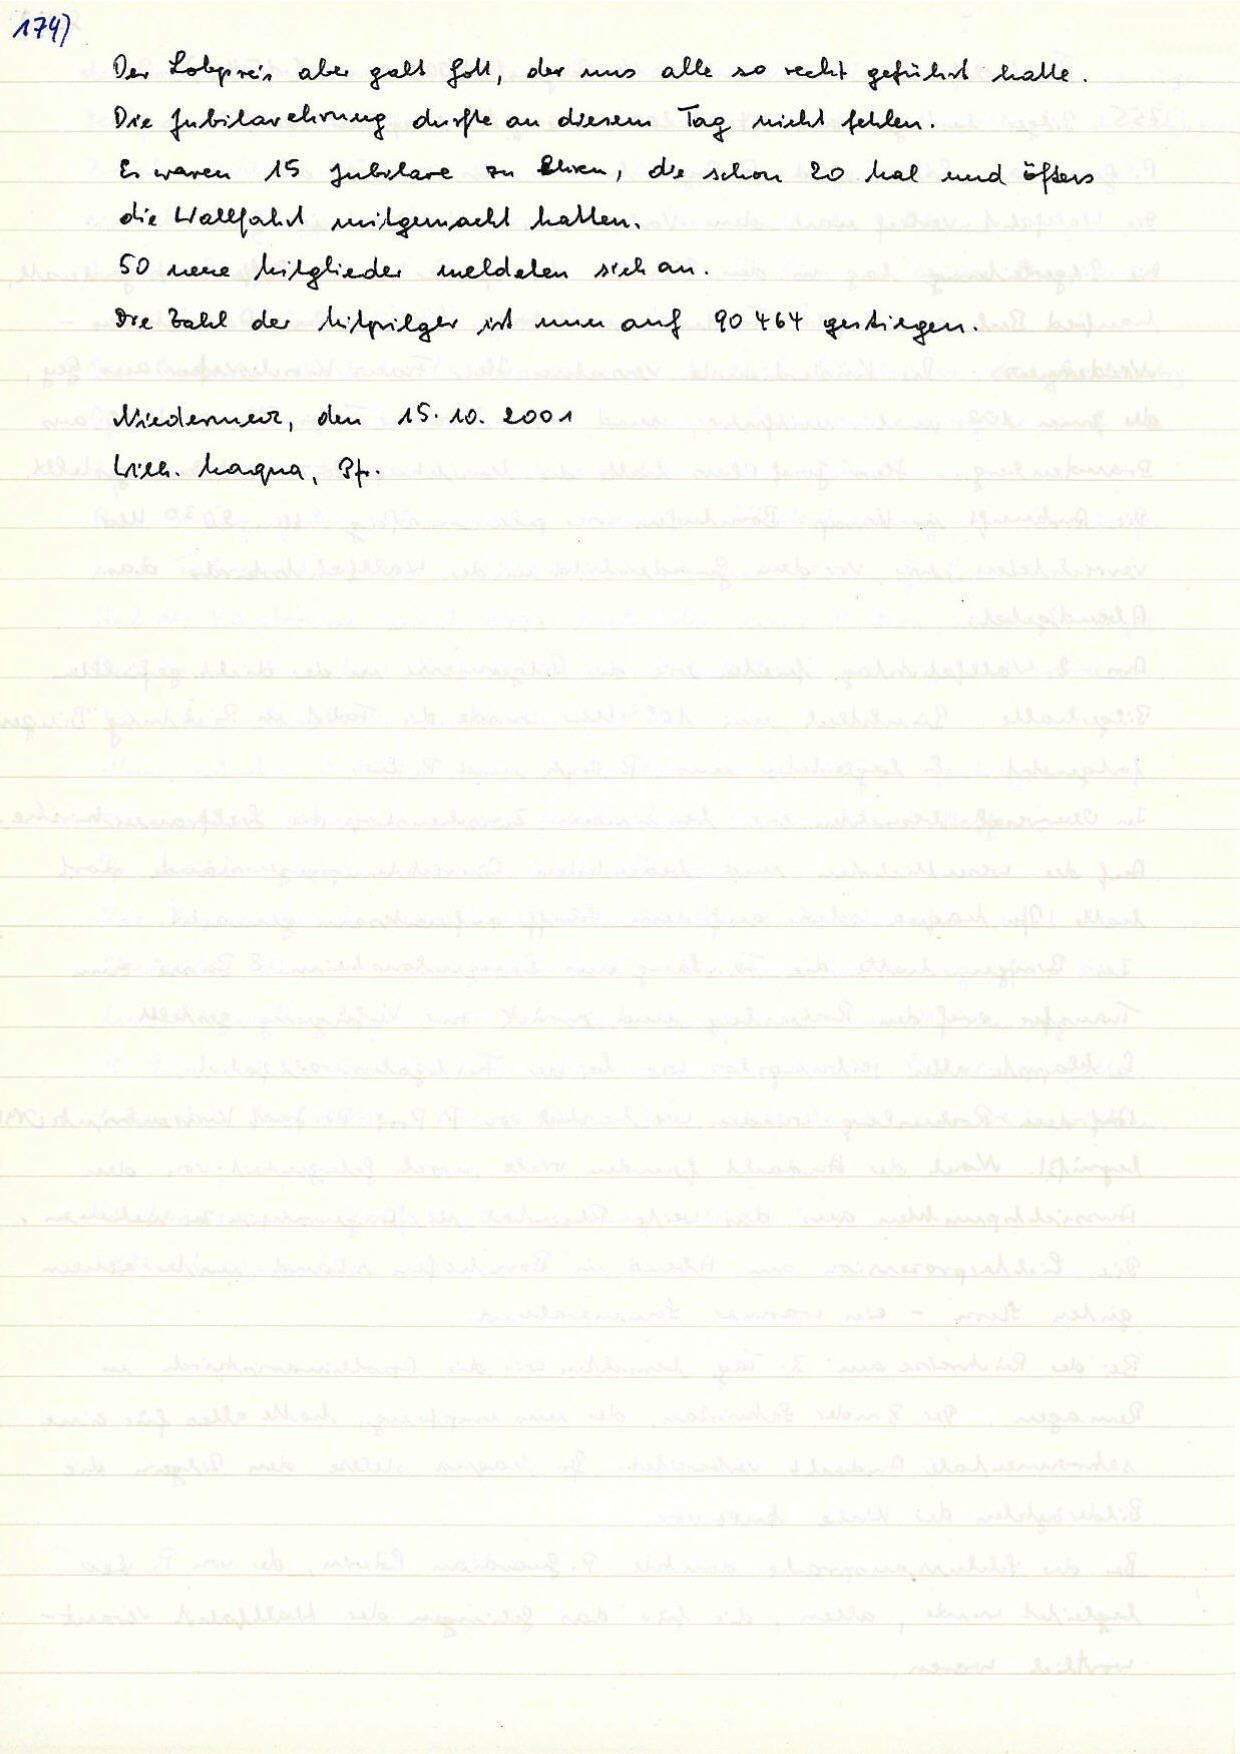 174)
Der Lobpreis aber galt Gott, der uns alle so recht geführt hatte.
Die Jubilarehrung durfte an diesem Tag nicht fehlen.
Es waren 15 Jubilare zu Ehren, die schon 20 Mal und öfters
die Wallfahrt mitgemacht hatten.
50 neue Mitglieder meldeten sich an.
Die Zahl der Mitpilger ist nun auf 90 464 gestiegen.
Niedermerz, den 15.10.2001
Wilh. Maqua, Pfr.